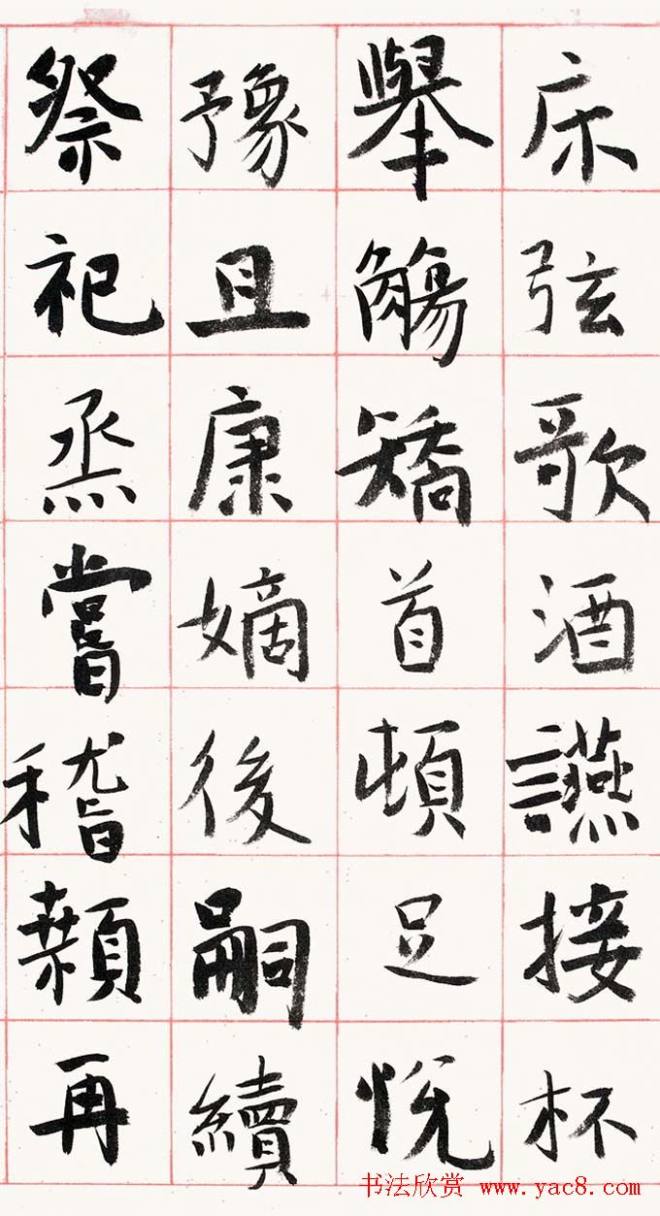 床弦歌酒讌接杯
舉觴矯首頓足悦
豫且康嫡後嗣續
祭祀烝嘗稽顙再
书法欣赏 www.yac8.com